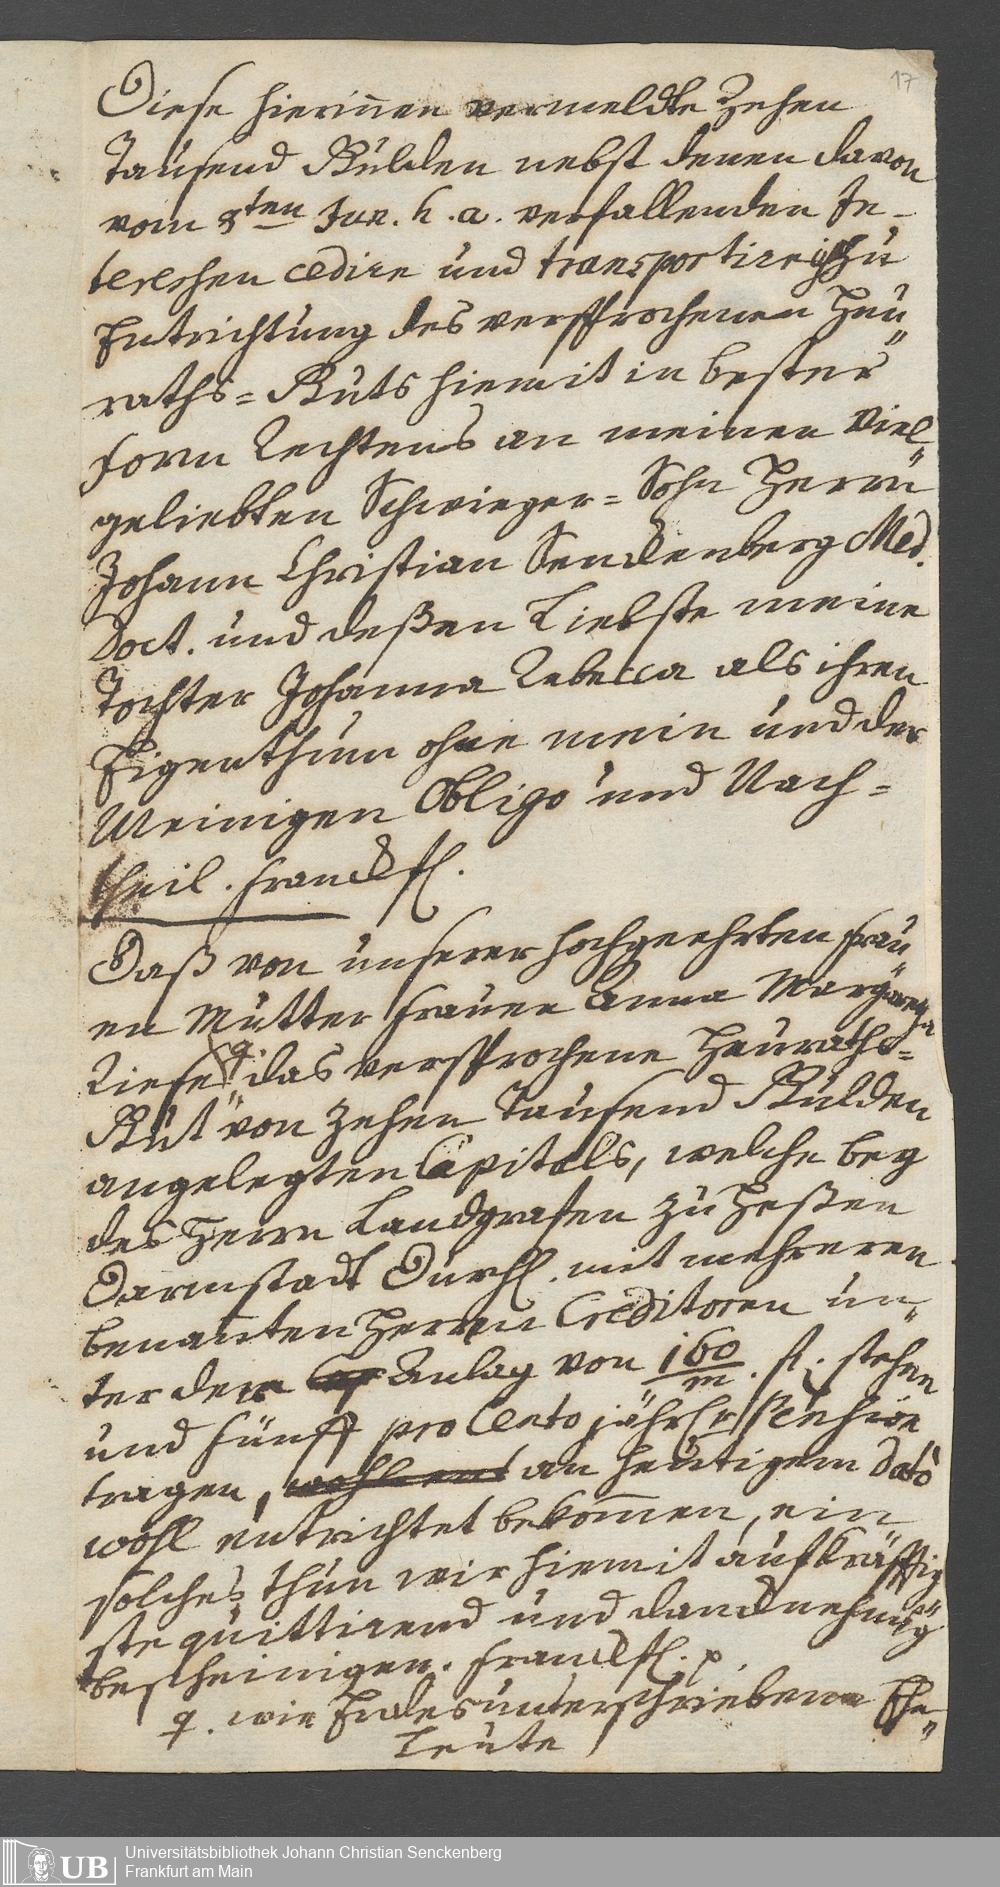 17
Diese hierinnen vermeldte Zehen
Tausend Gülden nebst denen davon
vom 8ten Jun. h. a. verfallenden In-
teressen cedire und transportire ich zu
Entrichtung des versprochenen Heu„
raths=Guts hiemit in bester
form Rechtens an meinen viel„
geliebten Schwieger=Sohn Herrn
Johann Christian Senckenberg Med.
Doct. und deßen Liebste meine
Tochter Johanna Rebecca als ihren
Eigenthum ohne mein und der
Meinigen Obligo und Nach=
theil. Franckf.
Daß von unserer hochgeehrten Frau„
en Mutter Frauen Anna Margaretha
Riese q. das versprochene Heuraths=
Gut von Zehen Tausend Gülden
angelegten Capitals, welche bey
des Herrn Landgrafen zu Heßen
Darmstadt Durchl. mit mehreren
benanten Herren Creditoren un„
ter der Anlag von 160/m. fl. stehen
und fünff pro Cento jährl. pension
tragen, wohl ent an heutigem dato
wohl entrichtet bekom̄en, ein
solches thun wir hiemit aufkräfftig„
ste quittirend und dancknehmig
bescheinigen. Franckf. p.
q. wir Endesunterschriebene Ehe„
Leute
Universitätsbibliothek Johann Christian Senckenberg
UB Frankfurt am Main